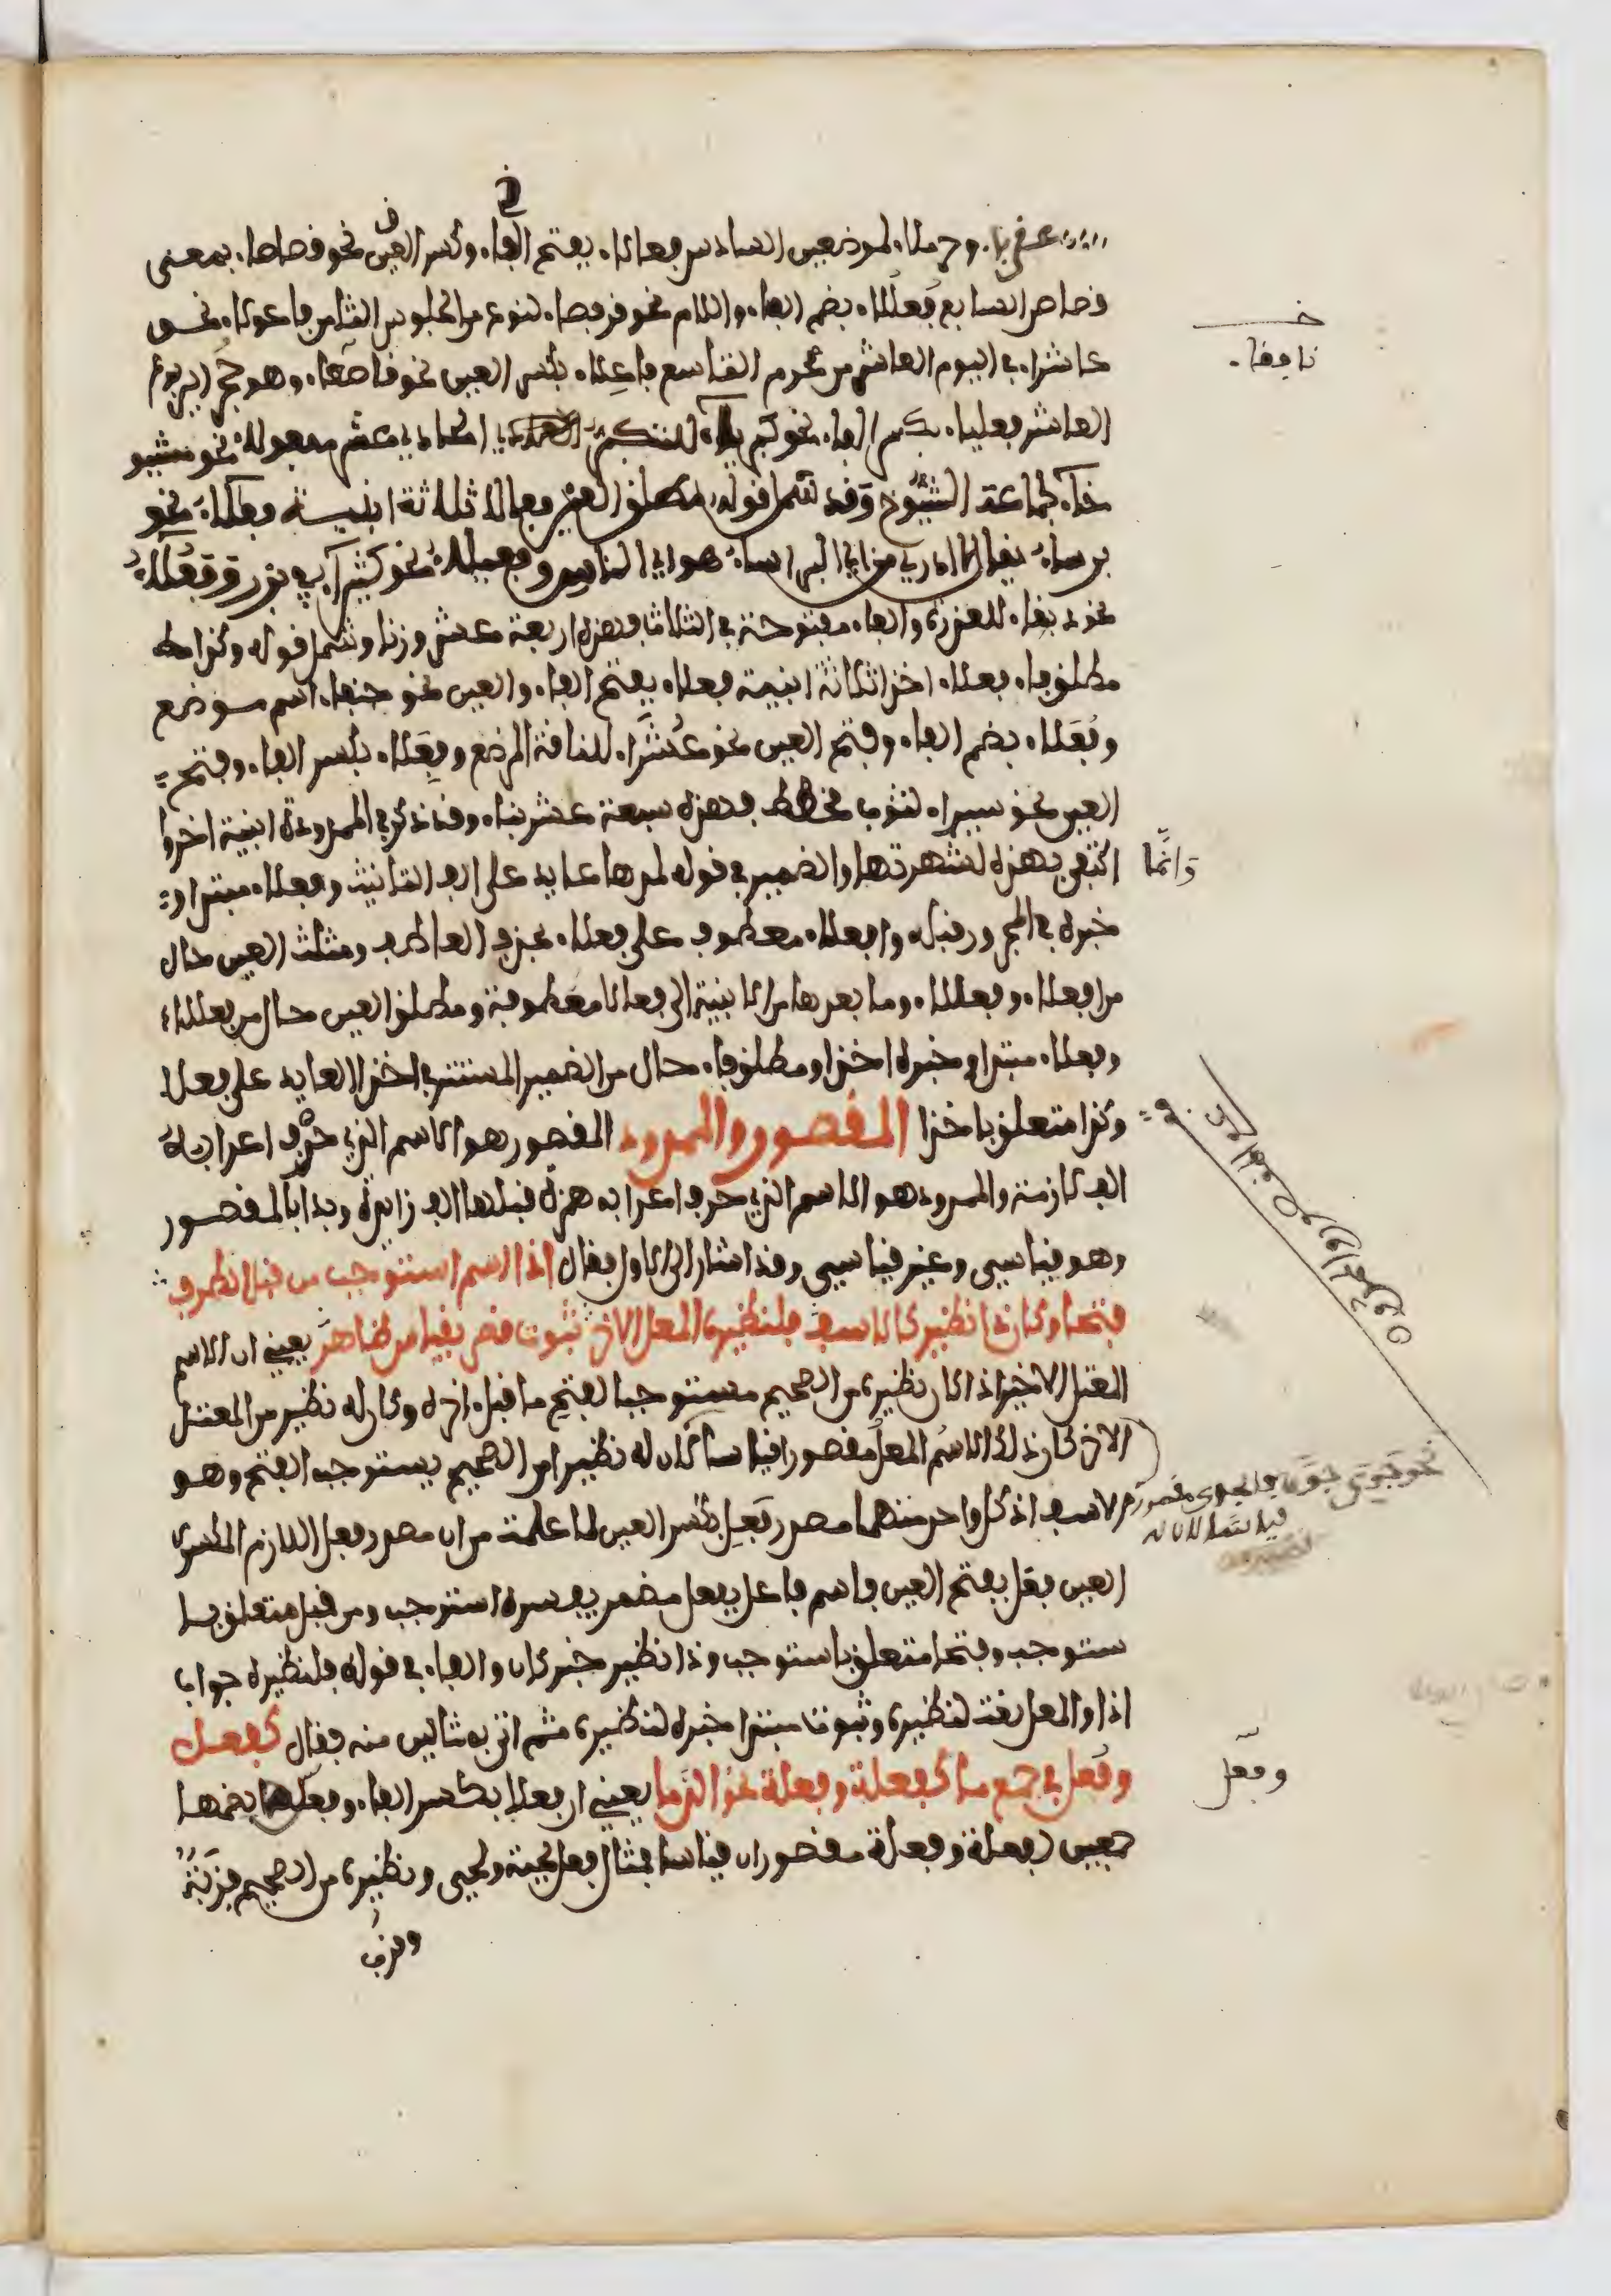 عقرباء وحرملاء لموضعين السادس فعالاء بفتح الفاء وكسر العين نحو قصاصاء بمعنى
قصاص السابع فعللاء بضم الفاء واللام نحو قرفصاء لنوع من الجلوس الثامن فاعولاء نحو
عاشوراء في اليوم العاشر من محرم التاسع فاعلاء بكسر العين نحو قاصعاء وهو جحر اليربوع
العاشر فعلياء بكسر الفاء نحو كبرياء للتكبر الحادي عشر مفعولاء نحو مشيو
خاء لجماعة الشيوخ وقد شمل قوله مطلق العين فعالا ثلاثة ابنية فعالاء نحو
براساء يقال ما ادري من اي البراساء هو اي الناس وفعيلاء نحو كثيراء بزر وفعولاء
نحو دبوقاء للعذرة والفاء مفتوحة في الثلاث فهذه اربعة عشر وزنا وشمل قوله وكذا
مطلق فاء فعلاء اخذا ثلاثة ابنية فعلاء بفتح الفاء والعين نحو جنفاء اسم موضع
وفعلاء بضم الفاء وفتح العين نحو عشراء للناقة المرضع وفعلاء بكسر الفاء وفتح
العين نحو سيراء لثوب مخطط فهذه سبعة عشر بناء وقد ذكر في الممدودة ابنية اخر و
اكتفى بهذه لشهرتها والضمير في قوله لمدها عايد على الف التانيث وفعلاء مبتدا و
خبره في المجرور قبله وافعلاء معطوف على فعلاء بحذف العاطف ومثلث العين حال
من افعلاء وفعللاء وما بعدها من الابنية الى فعالا معطوفة ومطلق العين حال من فعالاء
وفعلاء مبتدا وخبره اخذا ومطلق فاء حال من الضمير المستتر في اخذا العايد على فعلاء
وكذا متعلق باخذا المقصور والممدود المقصور هو الاسم الذي حرف اعرابه
الف لازمة والممدود هو الاسم الذي حرف اعرابه همزة قبلها الف زايدة وبدا بالمقصور
وهو قياسي وغير قياسي وقد اشار الى الاول فقال اذا اسم استوجب من قبل الطرف
فتحا وكان ذا نظير كالاسف فلنظيره المعل الاخر ثبوت قصر بقياس ظاهر يعني ان الاسم
المعتل الاخير اذا كان نظيره من الصحيح مستوجبا لفتح ما قبل اخره وكان له نظير من المعتل
الاخر كان ذلك الاسم المعل مقصورا قياسا كان له نظيرا من الصحيح يستوجب الفتح وهو
الاسف اذ كل واحد منهما مصدر فعل بكسر العين لما علمت من ان مصدر فعل اللازم المكسور
العين فعل بفتح العين فاسم فاعل بفعل مضمر يفسره استوجب ومن قبل متعلق با
ستوجب وفتحا متعلق باستوجب وذا نظير خبر كان والفاء في قوله فلنظيره جواب
اذا والمعل نعت لنظيره وثبوت مبتدا خبره لنظيره ثم اتى بمثالين منه فقال كفعل
وفعل في جمع ما كفعلة وفعلة نحو الدما يعني ان فعلا بكسر الفاء وفعلا بضمها
جمعين لفعلة وفعلة مقصوران قياسا فمثال فعل لحية ولحى ونظيره من الصحيح قربة
وقرب
نافقاء
وانما
وفعل